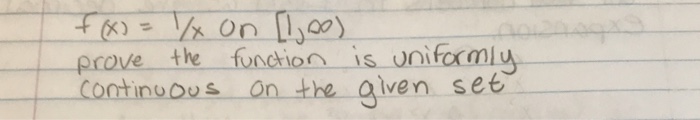 f(x) = 1/x on [1,∞)
prove the function is uniformly
continuous on the given set